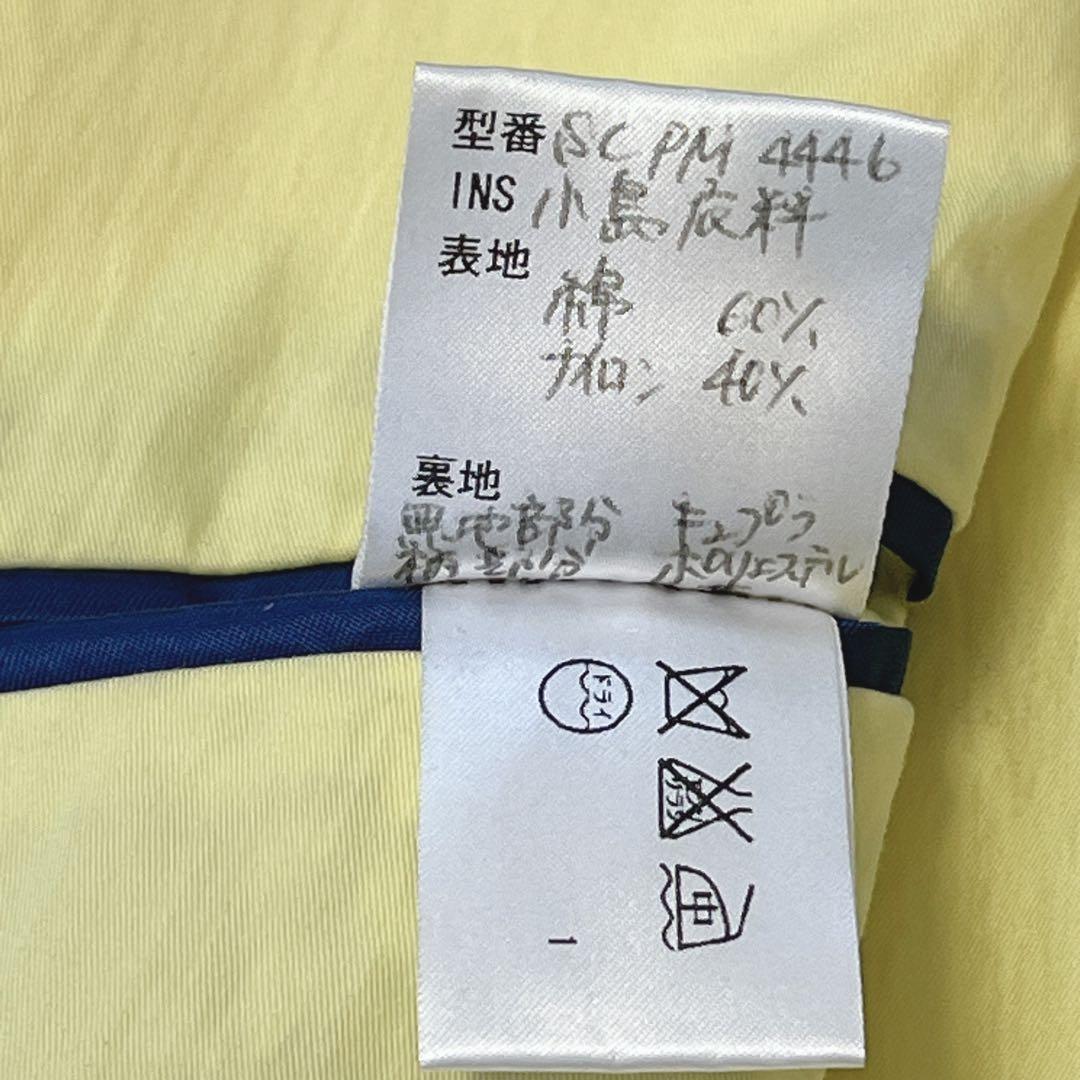 型番 SCPM 4446
INS 小島衣料
表地
綿 60%
ナイロン 40%
裏地
無地部分 キュプラ
柄部分 ポリエステル
ドライ
中
1